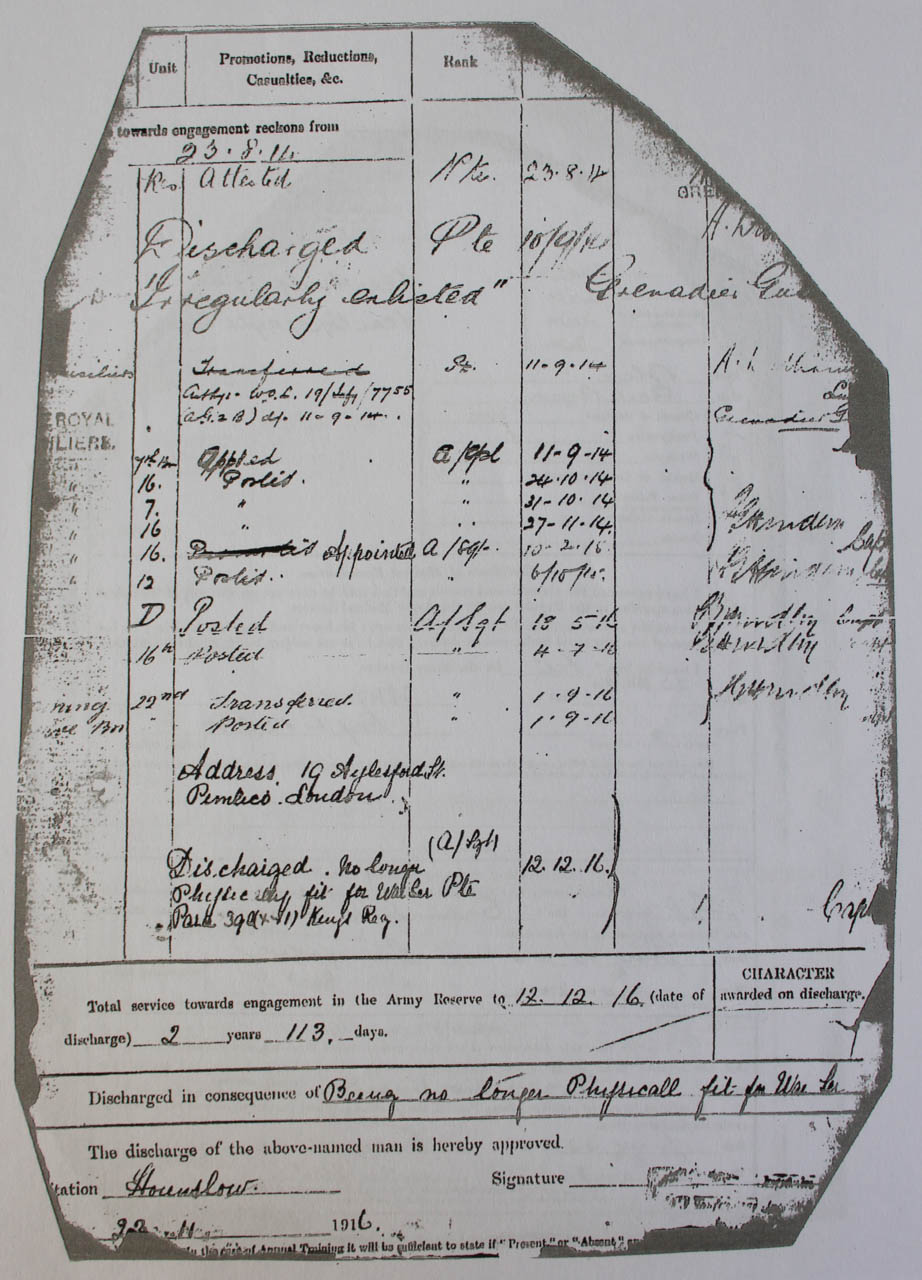 Unit Promotions, Reductions, Rank
Casualties, &c.
towards engagement reckons from
23.8.14
Res Attested Pte. 23.8.14
GRE
Discharged Pte
"Irregularly enlisted" Grenadier Gua
Transferred 11-9-14
Authy:- W.O.L. 19/Infy/7755
(A.G. 2 B) d/- 11-9-14.
Grenadier G
ROYAL
ILIERS.
7th Bn Appted A/Cpl 11-9-14
16. Postid. " 24.10.14
" 7. " " 31-10.14
" 16 " 27-11.14
" 16. Appointed A/Sgt. 10-2-15
" 12 Postid. "
D Posted A/Sgt 18 5-16
16th Posted " 4-7-16
ning 22nd Transferred. " 1-9-16
ve Bn " Posted " 1-9-16
Address. 19 Aylesford St.
Pimlico. London.
(A/Sgt)
Discharged. No longer 12.12.16.
Physically fit for War Ser Pte
Para 392 Kings Reg. Cap
CHARACTER
awarded on discharge.
Total service towards engagement in the Army Reserve to 12.12.16. (date of
discharge) 2 years 113, days.
Discharged in consequence of Being no longer Physicall fit for War Ser
The discharge of the above-named man is hereby approved.
tation Hounslow. Signature
22 11 1916.
in the case of Annual Training it will be sufficient to state if "Present" or "Absent"